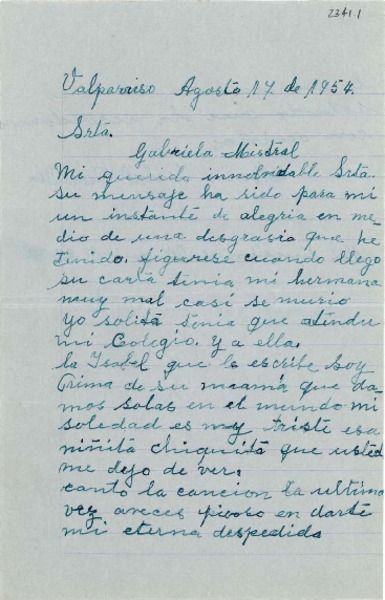 2341.1
Valparaiso Agosto 17 de 1954.
Srta.
Gabriela Mistral
Mi querida innolvidable Srta.
su mensaje ha sido para mi
un instante de alegria en me
dio de una desgrasia que he
tenido. figurese cuando llego
su carta tenia mi hermana
muy mal casi se murio
yo solita tenia que atindu
mi Colegio. y a ella.
la Isabel que le escribe soy
Prima de su mamá que da
mos solas en el mundo mi
soledad es muy triste esa
niñita chiquita que usted
me dejo de ver.
canto la cancion la ultima
vez aveces pienso en darte
mi eterna despedida